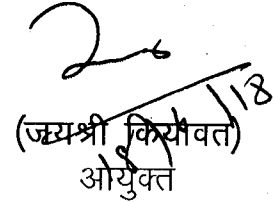 (जयश्री कियावत)
आयुक्त